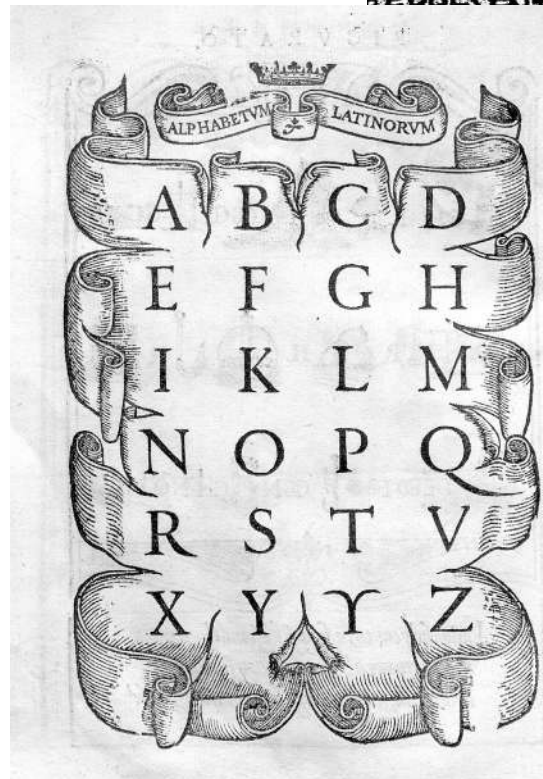 ALPHABETVM LATINORVM
A B C D
E F G H
I K L M
N O P Q
R S T V
X Y ϒ Z